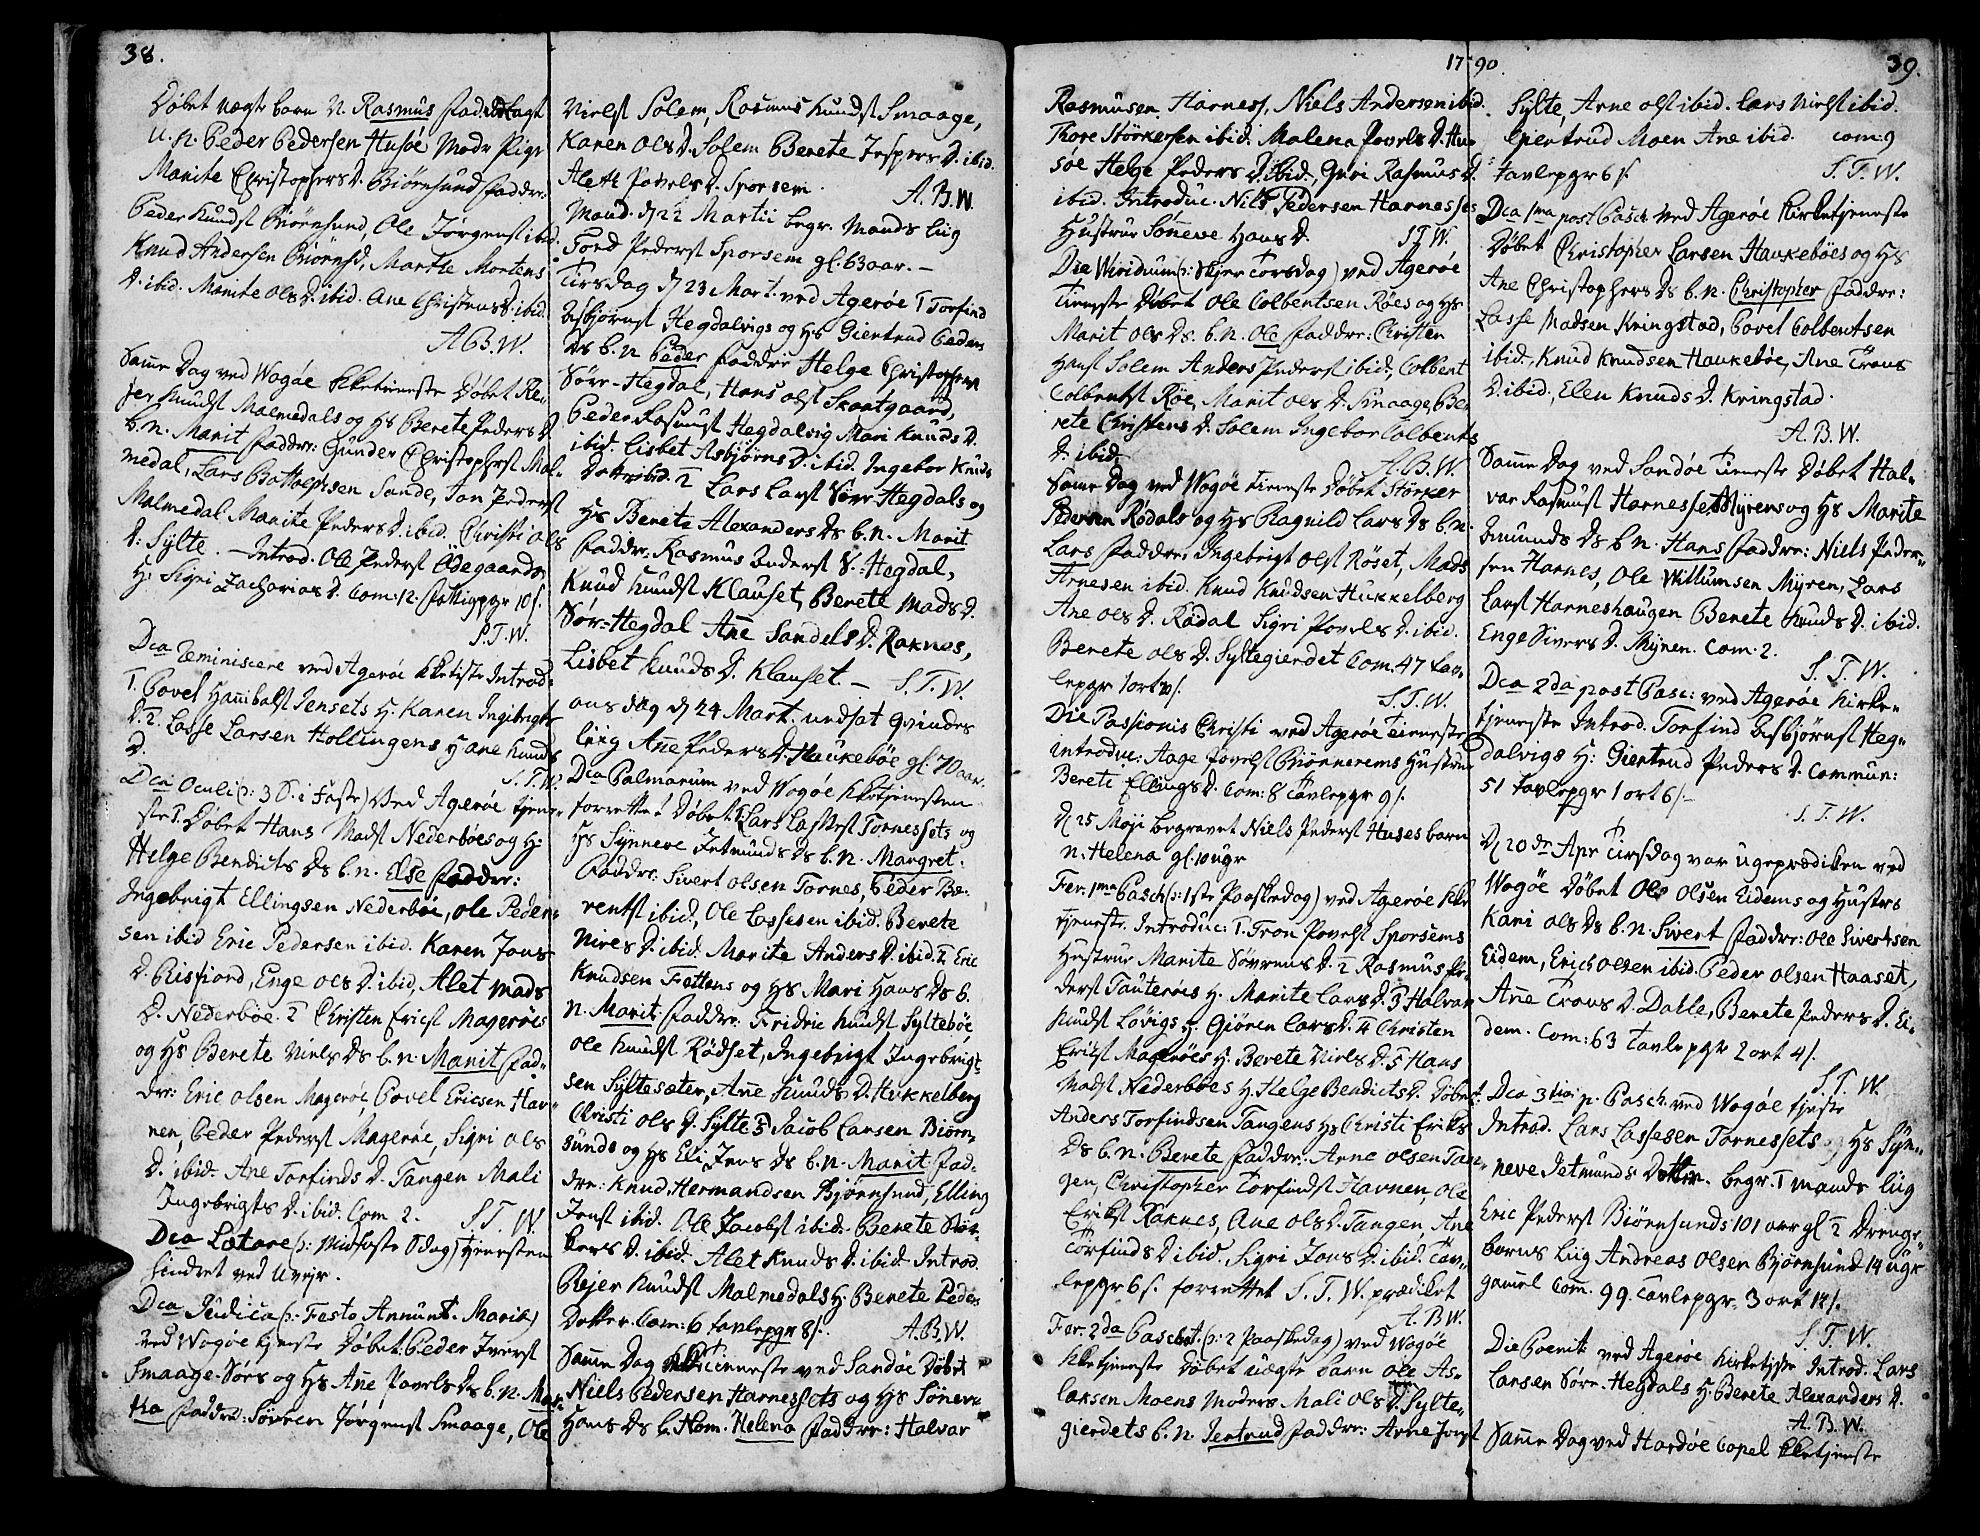 38.
Døbet uægte barn N. Rasmus fad. udlagt
U. K. Peder Pedersen Husøe Mode Pige
Marite Christophers D. Biörnsund Faddr:
Peder Knuds: Biörnsund, Ole Jörgens: ibid.
Knud Andersen Biörns:, Marthe Mortens
D. ibid. Marite Ols D. ibid. Ane Christens D. ibid.
A. B. W.
Samme Dag ved Wogöe Kketieneste Döbet Re-
jer Knuds: Malmedals og Hs Berete Peders D
b. n. Marit Faddr: Gunder Christophers: Mal-
medal, Lars Bottolphsen Sande, Jon Peders:
Malmedal Marite Peders D. ibid. Christi Ols
D. Sÿlte. – Introd. Ole Peders: Ödegaards
H: Sigri Zacharias D. Com: 12. Fattigpgr 10 s.
S. T. W.
Dca Reminiscere ved Agerøe Kketiste Introd:
1. Povel Hanibals: Jensets H. Karen Ingebrigts
D. 2. Lasse Larsen Hollingens H Ane Knuds
D.
S. T. W.
Dca Oculi (: 3 S. i Faste) Ved Agerøe tiene-
ste 1. Döbet Hans Mads: Nederböes og H:
Helge Bendicts Ds b. n. Else Faddr:
Ingebrigt Ellingsen Nederböe, Ole Peder-
sen ibid Eric Pedersen ibid. Karen Jons
D. Risfiord, Enge Ols D. ibid, Alet Mads
D. Nederböe. 2 Christen Erics: Mageröes
og Hs Berete Niels Ds b. n. Marit Fad-
dr: Eric Olsen Mageröe, Povel Ericsen Hav-
nen, Peder Peders: Mageröe, Sigri Ols
D. ibid. Ane Torfinds D. Tangen Mali
Ingebrigts D. ibid. Com 2. S. T. W.
Dca Lætare (: Midfaste Sdag) tjenesten
hindret ved Uvejr.
Dca Judica (: Festo Annunt. Mariæ)
ved Wogöe tjeneste Döbet: Peder Ivers:
Smaage-Sörs og Hs Ane Povels Ds b. n. Mar-
tha Faddr: Sövren Jörgens: Smaage, Ole
Niels: Solem, Rasmus Knuds: Smaage,
Karen Ols D. Solem Berete Jespers D. ibid.
Aleth Povels D. Sporsem.
A. B. W.
Mand. d 22 Martii begr. Mands liig
Tord Peders: Sporsem gl. 63 aar. –
Tirsdag d 23 Mart. ved Agerøe 1 Torfind
Asbjörns: Hegdalvigs og Hs Giertrud Peders
Ds b. n. Peder Faddr Helge Christophers:
Sörr-Hegdal, Hans Ols: Skaatgaard,
Peder Rasmus: Hegdalvig Mari Knuds D.
ibid. Lisbet Asbjörns D. ibid. Ingebor Knuds
Datter ibid. 2 Lars Lars: Sörr Hegdals og
Hs Berete Alexanders Ds b. n. Marit
Faddr. Rasmus Anders: S. Hegdal,
Knud Knuds: Klauset, Berete Mads D.
Sör-Hegdal Ane Sandels D. Raknes,
Lisbet Knuds D. Klauset. – S. T. W.
ons dag d 24 Mart. nedsat Qvindes
liig Ane Peders D. Haukeböe gl. 70 aar.
Dca Palmarum ved Wogöe Kketjenesten
forrettet Döbet 1 Lars Lasses: Tornessets og
Hs Synneve Jetmunds Ds b. n. Margret.
Faddr: Sivert Olsen Tornes, Peder Be-
rents: ibid, Ole Lassesen ibid. Berete
Nires D. ibid. Marite Anders D. ibid. 2 Eric
Knudsen Fattens og Hs Mari Hans Ds b.
n. Marit Faddr: Fridric Knuds: Sylteböe
Ole Knuds: Rödset, Ingebrigt Ingebrigt
sen Syltesæter, Ane Knuds D. Hukkelberg
Christi Ols D. Sylte 3 Jacob Larsen Biörn-
sunds og Hs Eli Jens Ds b. n. Marit Fad-
dr: Knud Hermandsen Bjørnsund, Elling
Jons: ibid. Ole Jacobs: ibid. Berete Stör-
kers D. ibid. Alet Knuds D. ibid. Introd.
Rejer Knuds: Malmedals H. Berete Peders
Dotter. Com: 6 Tavlepgr 8 s.
A. B. W.
Samme Dag Kketieneste ved Sandøe Döbet
Niels Pedersen Harnessets og Hs Söneve
Hans Ds b. Nom. Helena Faddr: Halvar
1790.
39.
Rasmusen Harnes:, Niels Andersen ibid.
Thore Störkersen ibid. Malena Povels D. Hu-
söe Helge Peders D. ibid., Guri Rasmus D.
ibid. Introduc. Nils Pedersen Harnesses
Hustrue Söneve Hans D. S. T. W.
Die Viridium (: Skjer Torsdag) ved Agerøe
Tieneste Döbet Ole Colbentsen Röes og Hs
Marit Ols Ds. b. n. Ole Faddr: Christen
Hans: Solem Anders Peders: ibid., Colbent
Colbents: Röe, Marit Ols D. Smaage, Be-
rete Christens D. Solem Ingebor Colbents
D. ibid.
A. B. W.
Samme Dag ved Wogöe tieneste Döbet Störker
Pedersen Rödals og Hs Ragnild Lars Ds b. n.
Lars Faddr: Ingebrigt Ols: Röset, Mads
Arnesen ibid. Knud Knudsen Hukkelberg
Ane Ols D. Rödal Sigri Povels D. ibid.
Berete Ols D. Syltegierdet Com. 47 Tav-
lepgr 1 ort s.
S. T. W.
Die Passionis Christi ved Agerøe tieneste
introduc: Aage Povels: Biönnerems Hustrue
Bereti Ellings D. Com: 8 Tavlepgr 9 s.
d 25 Maji begravet Niels Peders: Huses barn
n. Helena gl. 10 ugr
Fer. 1ma Pasch (: 1ste Paaskedag) ved Agerøe Kke
tjeneste. Introduc: 1. Tron Povels: Sporsems
Hustrue Marite Sövrens D. 2 Rasmus Pe-
ders: Tauteröes H. Marite Lars D. 3 Halvar
Knuds: Lövigs H. Gjören Lars D. 4 Christen
Erics: Mageröes H. Berete Niels D. 5 Hans
Mads: Nederböes H. Helge Bendicts D. Döbet
Anders Torfindsen Tangens Hs Christi Eriks
Ds b. n. Berete Faddr: Arne Olsen Tan-
gen, Christopher Torfinds: Havnen, Ole
Eriks: Raknes, Ane Ols D. Tangen, Ane
Torfinds D ibid. Sigri Jons D. ibid. Tav-
lepgr 6 s. forrettet S. T. W. prædiket
A. B. W.
Fer. 2da Paschat. (: 2 Paaskedag) ved Wogöe
Kketjeneste Döbet uægte Barn Ole As-
laksen Moens Moders Mali Ols D. Sylte-
gierdets b. n. Jertrud Faddr: Arne Jons:
Sylte, Arne Ols: ibid. Lars Niels: ibid.
Giertrud Moen Ane ibid. Com: 9
Tavlepgr 6 s.
S. T. W.
Dca 1ma post Pasch. ved Agerøe Kirketjeneste
Döbet Christopher Larsen Haukeböes og Hs
Ane Christophers Ds b. n. Christopher Faddr:
Lasse Madsen Kringstad, Povel Colbentsen
ibid., Knud Knudsen Haukeböe, Ane Trons
D ibid., Elen Knuds D. Kringstad.
A. B. W.
Samme Dag ved Sandøe Tieneste Döbet Hal-
var Rasmus: Harnesset Myrens og Hs Marite
Amunds Ds b. n. Hans Faddr: Niels Peder-
sen Harnes, Ole Willumsen Myren, Lars
Lars: Harneshaugen Berete Knuds D. ibid.
Enge Sivers D. Myren. Com. 2.
S. T. W.
Dca 2da post Pasc: ved Agerøe Kirke-
tjeneste Introd. Torfind Asbjørns: Heg-
dalvigs H: Giertrud Peders D. Commun:
51 Tavlepgr 1 ort 6 s. –
S. T. W.
d 20de Apr Tirsdag var ugeprædiken ved
Wogöe Döbet Ole Olsen Eidems og Hustrus
Kari Ols Ds b. n. Sivert Faddr: Ole Sivertsen
Eidem, Erich Olsen ibid. Peder Olsen Haaset,
Ane Trons D. Dalle, Berete Peders D. Ei-
dem. Com: 63 Tavlepgr 2 ort 4 s.
S. T. W.
Dca 3tia p. Pasch. ved Wogöe tjeneste
Introd. Lars Lassesen Tornessets Hs Syn-
neve Jetmunds Dotter. begr. 1 mands liig
Eric Peders: Biörnsunds 101 aar gl. 2 Drenge-
barns liig Andreas Olsen Bjørnsund 14 ugr
gamel Com. 99. Tavlepgr. 3 ort 14 s.
S. T. W.
Die Poenit: ved Agerøe Kirketjste Introd. Lars
Larsen Sörr-Hegdals H. Berete Alexanders D.
A. B. W.
Samme Dag ved Hardøe Capel Kketjenste